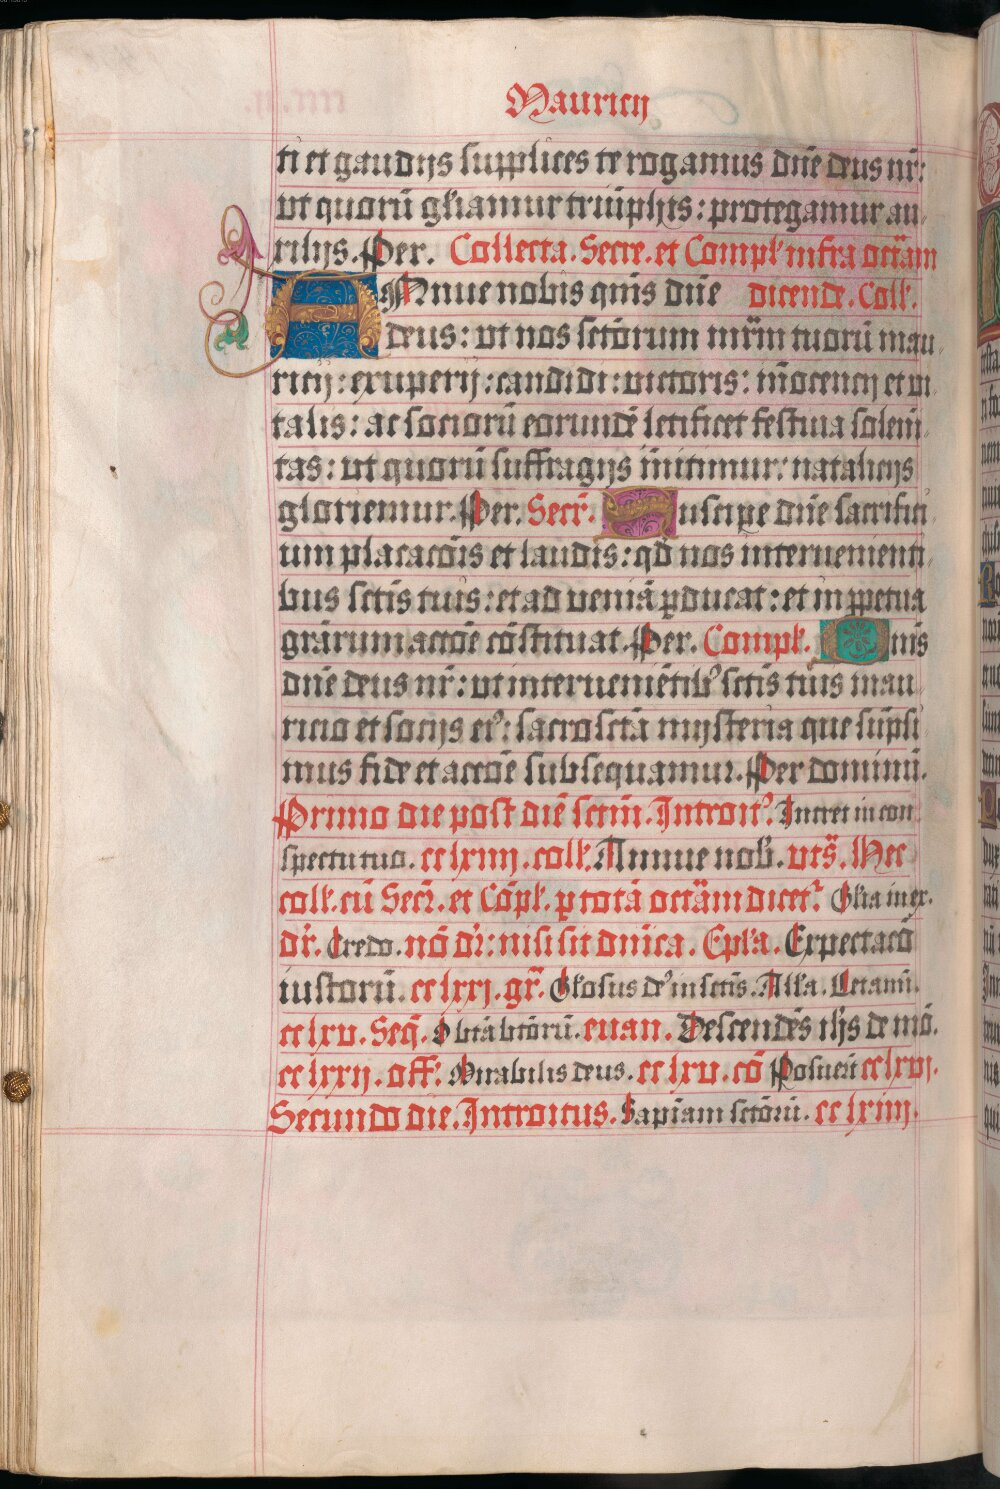 Mauricij
ti et gaudijs supplices te rogamus dn̄e deus nr̄:
ut quorū gl'iamur triūphis: protegamur au
xilijs. Per. Collecta. Secre. et Compl' infra octāam
Annue nobis qm̄s dn̄e dicende. Coll'.
deus: ut nos sctōrum mr̄m tuorū mau
ricij: exuperij: candidi: victoris: īnocencij et vi
talis: ac sociorū eorundē letificet festiua solen̄
tas: ut quorū suffragijs īnitimur: natalicijs
gloriemur. Per. Secr̄. Suscipe dn̄e sacrifici
um placacōis et laudis: qd̄ nos interuenienti
bus sctīs tuis: et ad veniā p̱ducat: et in p̱petua
grārum accōe cōstituat. Per. Compl'. Qm̄s
dn̄e deus nr̄: ut interueniētib' sctīs tuis mau
ricio et socijs ei': sacroscta mysteria que sūpsi
mus fide et accōe subsequamur. Per dominū.
Primo die post diē sctm̄. Introit'. Intret in con
spectu tuo. cclxiiij. coll'. Annue nob̄. vts̄. Hec
coll'. cū Secr̄. et Cōpl'. p̱ totā octāam dicet'. Gl'ia in ex.
dr̄. Credo. nō dr̄: nisi sit dn̄ica. Ep̄l'a. Expectacō
iustorū. cclxxj. gr̄. Gl'osus de' in sctīs. All'a. Cetamī.
cclxv. Seq̄. O btā btōrū. euan. Descendēs ih̄s de mō.
cclxxij. off. Mirabilis deus. cclxv. cō Posuerīt cclxvj.
Secundo die. Introitus. Sapīam sctōrū. cclxiiij.